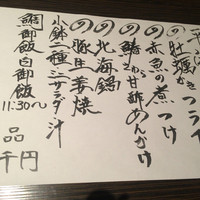 牡蠣かきフライ
の赤魚の煮つけ
の鱚かき甘酢あんかけ
の北海鍋
の豚生姜焼
小鉢二種ミニサラダ汁
鯛御飯 白御飯
11:30〜
一品
千円